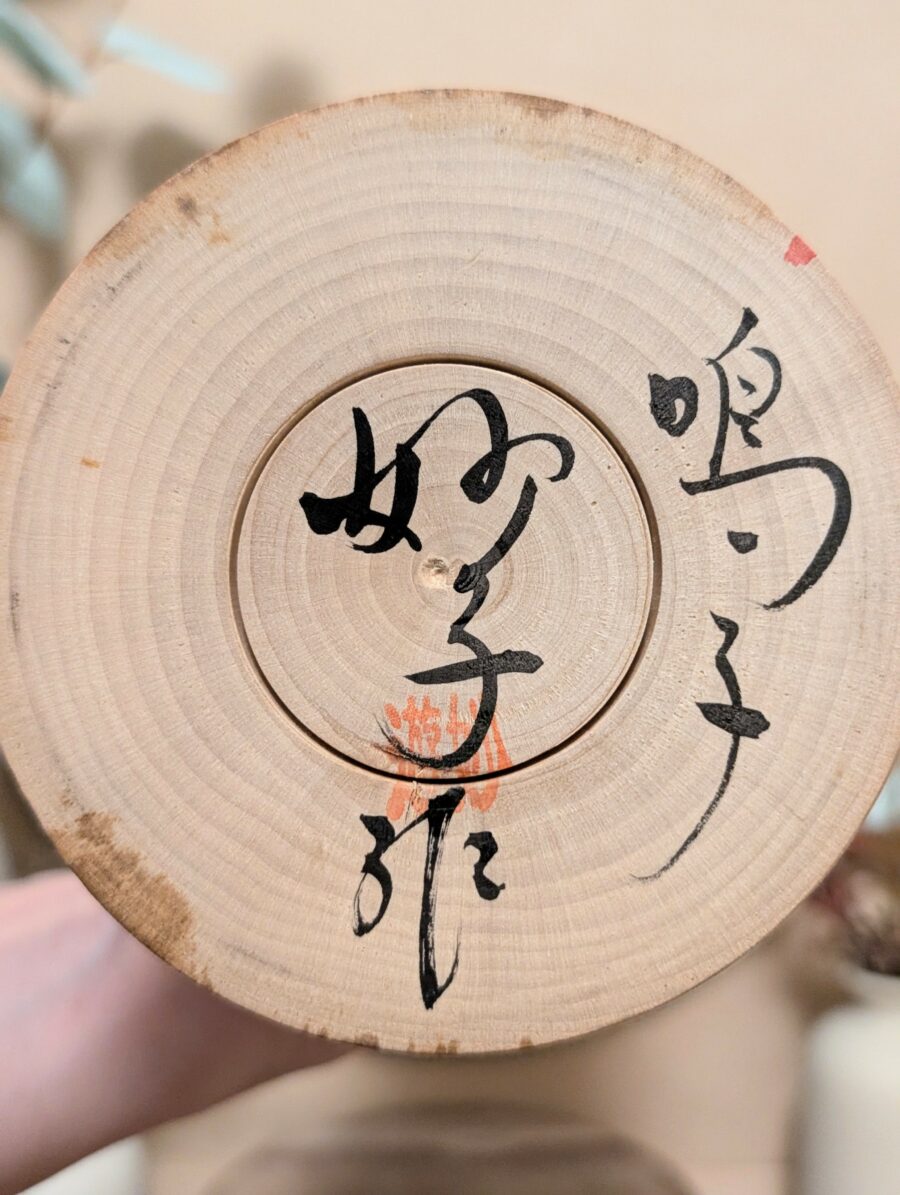 鳴子
妙子